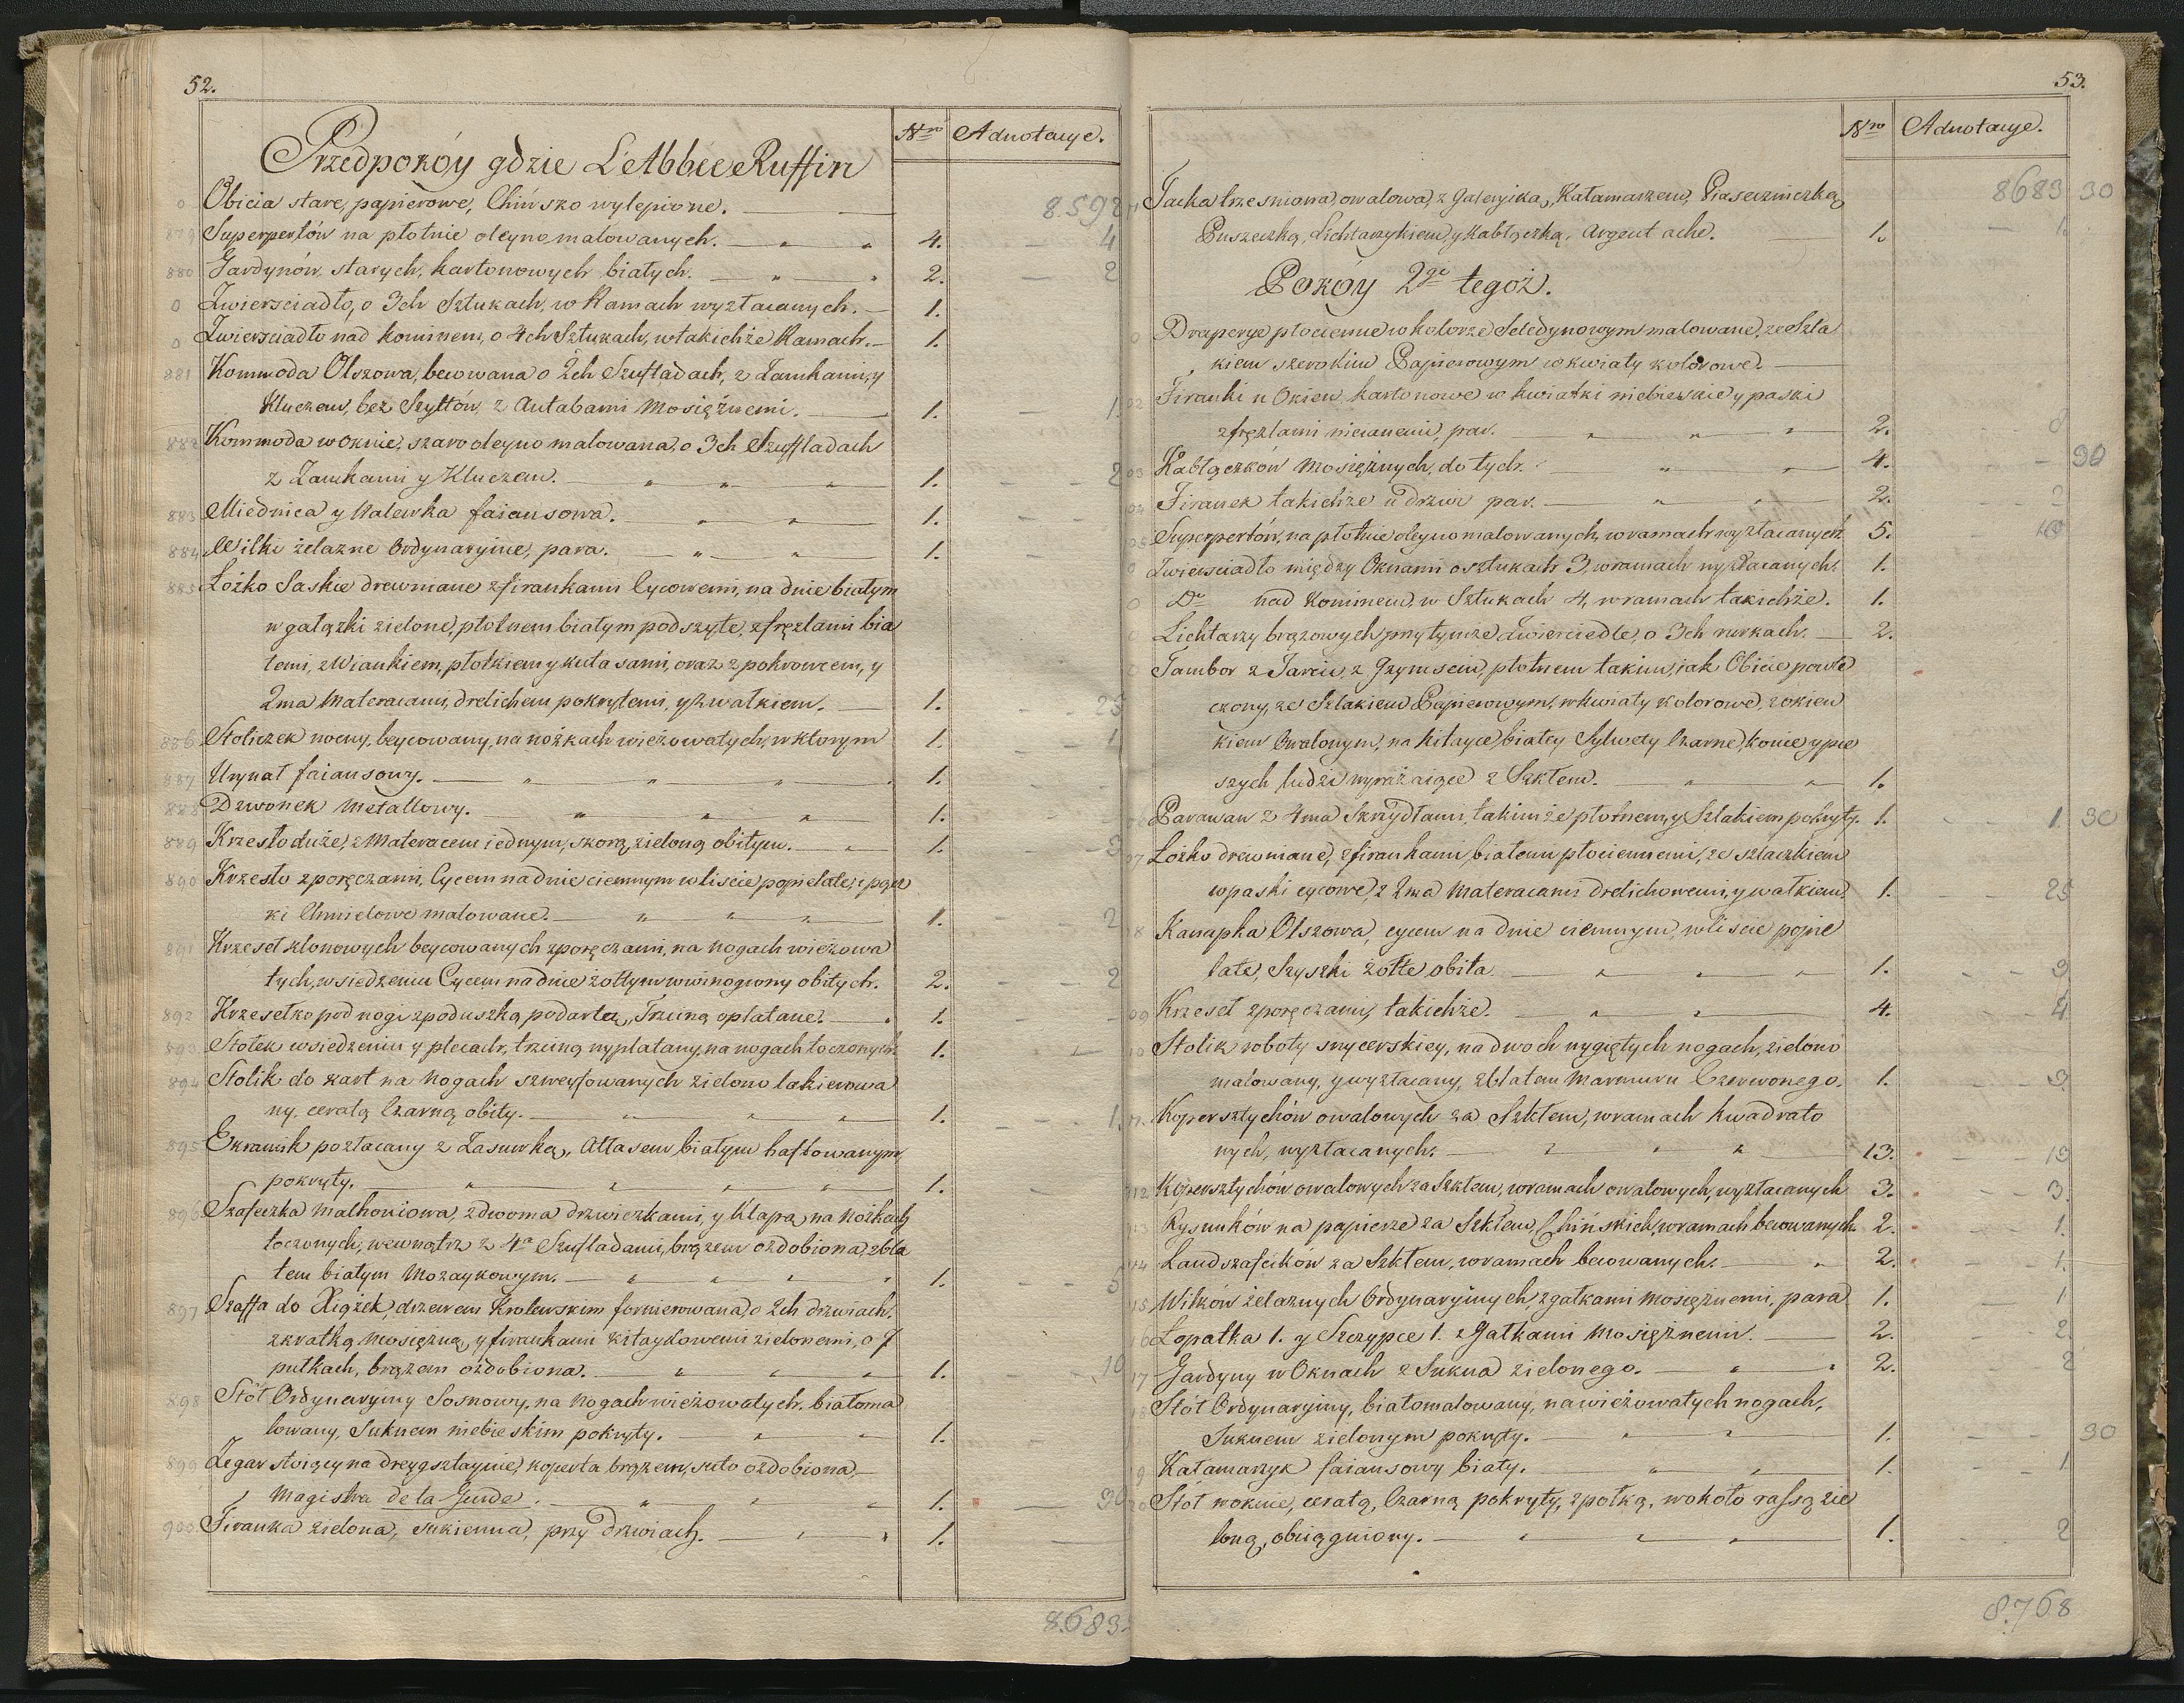 52.
Nro Adnotacye.
Przedpokóy gdzie L'Abbee Ruffin
8592
0 Obicia stare, papierowe, Chińsko wylepione.
879 Superpertów na płotnie oleyno malowanych. 4. 4
880 Gardynów, starych, kartonowych białych. 2. 2
0 Zwierściadło, o 3ch Sztukach, w Ramach wyzłacanych. 1.
0 Zwierściadło nad kominem, o 4ch Sztukach, w takichże Ramach. 1.
881 Kommoda Olszowa, becowana o 2ch Szufladach, z Zamkami, y
Kluczem, bez Szyltów, z Antabami Mosiężnemi. 1. 1.
882 Kommoda w oknie, szaro oleyno malowana, o 3ch Szufladach
z Zamkami y Kluczem. 1. 2
883 Miednica y Nalewka faiansowa. 1.
884 Wilki żelazne Ordynaryine, para. 1.
885 Łóżko Saskie drewniane z firankami Cycowemi, na dnie białym
w gałązki zielone, płotnem białym podszyte, z fręzlami bia
łemi, z Wiankiem, płotkiem y kutasami, oraz z pokrowcem, y
2ma Materacami, drelichem pokrytemi, y z wałkiem. 1. 25
886 Stoliczek nocny, beycowany, na nóżkach wieżowatych, w ktorym 1. 1
887 Urynał faiansowy. 1.
888 Dzwonek Metallowy. 1.
889 Krzesło duże, z Materacem iednym, skorą zieloną obitym. 1. 3
890 Krzesło z poręczami, Cycem na dnie ciemnym w liście popielate, i pącz
ki Chmielowe malowane. 1. 2
891 Krzeseł klonowych beycowanych z poręczami, na nogach wieżowa
tych, w siedzeniu Cycem na dnie żółtym w winogrony obitych. 2. 2
892 Krzesełko pod nogi z poduszką podartą, Trzciną oplatane. 1.
893 Stołek w siedzeniu y plecach, trzciną wyplatany, na nogach toczonych 1.
894 Stolik do kart na Nogach szweyfowanych zielono lakierowa
ny, ceratą Czarną obity. 1. 1.
895 Ekranik pozłacany z Zasuwką, Attasem białym haftowanym,
pokryty. 1.
896 Szafeczka Malhoniowa, z dwoma drzwiczkami, y Klapą, na Nóżkach
toczonych, wewnątrz z 4a Szufladami, brązem ozdobiona, z bla
tem białym Mozaykowym. 1. 5
897 Szaffa do Xiążek, drzewem Krolewskim fornierowana o 2ch drzwiach.
z kratką Mosiężną, y firankami kitaykowemi zielonemi, o 7
pułkach, brązem ozdobiona. 1. 10
898 Stół Ordynaryiny Sosnowy, na Nogach wieżowatych, białoma
lowany, Suknem niebieskim pokryty. 1.
899 Zegar stoiący na dreygsztaynie, koperta brązem, suto ozdobiona,
Magistra de la Gurde. 1. 30
900 Firanka zielona, sukienna, przy Drzwiach. 1.
8.683.
53.
Nro Adnotacye.
8683 30
Tacka trzesniowa, owalowa, z Galeryiką, Kałamarzem, Piaseczniczką,
Puszeczką, Lichtarzykiem, y Kabłączką, Argent aché. 1. 1.
Pokóy 2gi tegoż.
0 Draperye płocienne w kolorze Seledynowym malowane, ze Szla
kiem szerokim Papierowym w kwiaty kolorowe.
02 Firanki u Okien, kartonowe w kwiatki niebieskie y paski
z fręzlami nicianemi, par. 2. 8
03 Kabłączków Mosiężnych, do tych. 4. 30
04 Firanek takichże u drzwi par. 2. 2
05 Superpertów, na płotnie oleyno malowanych, w ramach wyzłacanych 5. 10
0 Zwierściadło między Oknami o sztukach 3, w ramach wyzłacanych. 1.
0 Do nad Kominem, w Sztukach 4, w ramach takichże. 1.
0 Lichtarzy brązowych przy tymże Zwierciedle, o 3ch rurkach. 2.
0 Tambor z Tarcic, z Gzymsem, płotnem takim, iak Obicie powle
czony, ze Szlakiem Papierowym, w kwiaty kolorowe, z okien
kiem Owalowym, na kitayce białey Sylwety Czarne, konie y pie
szych ludzi wyrażaiące z Szkłem. 1.
06 Parawan z 4ma Skrzydłami, takimże płotnem, y Szlakiem pokryty. 1. 1. 30
07 Łóżko drewniane, z firankami białemi płociennemi, ze szlaczkiem
w paski cycowe, z 2ma Materacami Drelichowemi, y wałkiem. 1. 25
08 Kanapka Olszowa, cycem na dnie ciemnym, w liście popie
late, Szyszki żółte, obita. 1. 3.
09 Krzeseł z poręczami, takichże. 4. 4
10 Stolik roboty snycerskiey, na dwoch wygiętych nogach, zielono
malowany, y wyzłacany, z blatem Marmuru Czerwonego. 1. 3.
11. Kopersztychów owalowych za Szkłem, w ramach kwadrato
wych, wyzłacanych. 13. 13
912 Kopersztychów owalowych za Szkłem, w ramach owalowych, wyzłacanych 3. 3.
13 Rysunków na papierze za Szkłem, Chińskich, w ramach becowanych. 2. 1.
14 Landszafcików za Szkłem, w ramach becowanych. 2. 1.
15 Wilków żelaznych Ordynaryinych, z gałkami Mosiężnemi, para 1. 1
16 Łopatka 1. y Szczypce 1. z Gałkami Mosiężnemi. 2. 2.
17 Gardyny w Oknach z Sukna zielonego. 2. 2
18 Stół Ordynaryiny, biało malowany, na wieżowatych nogach,
Suknem zielonym pokryty. 1. 30
19 Kałamarzyk faiansowy biały. 1. 1
20 Stół w oknie, ceratą, Czarną pokryty, z połką, wokoło rassą zie
loną, obciągniony. 1. 2
8.768